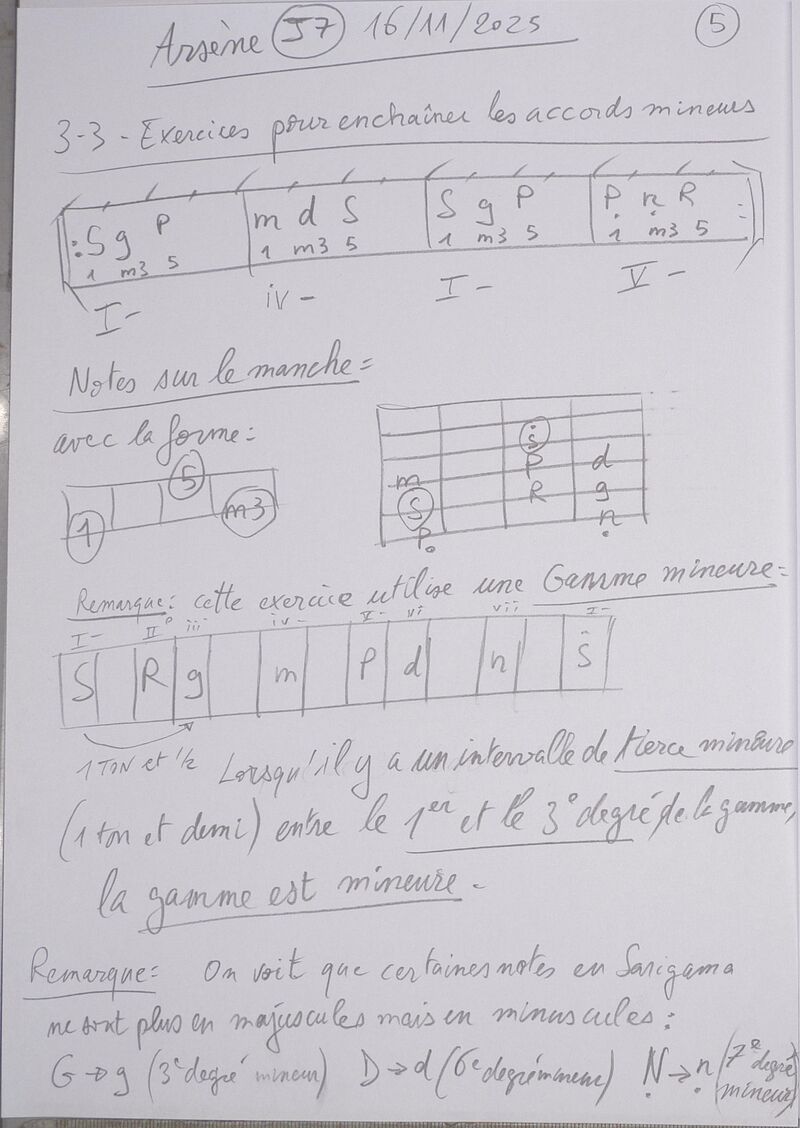 Arsène J7 16/11/2025 5
3-3 - Exercices pour enchaîner les accords mineurs
: S g P m d S S g P P n R :
1 m3 5 1 m3 5 1 m3 5 1 m3 5
I- iv- I- V-
Notes sur le manche =
avec la forme :
1 5 m3
Ṡ
m P d
S R g
P n
Remarque : cette exercice utilise une Gamme mineure =
I- II° iii iv- V- vi vii I-
S R g m P d n Ṡ
1 TON et 1/2 Lorsqu'il y a un intervalle de tierce mineure
(1 ton et demi) entre le 1er et le 3° degré, de la gamme,
la gamme est mineure -
Remarque = On voit que certaines notes en Sarigama
ne sont plus en majuscules mais en minuscules :
G → g (3e degré mineur) D → d (6e degré mineur) Ṇ → ṇ (7e degré mineur)